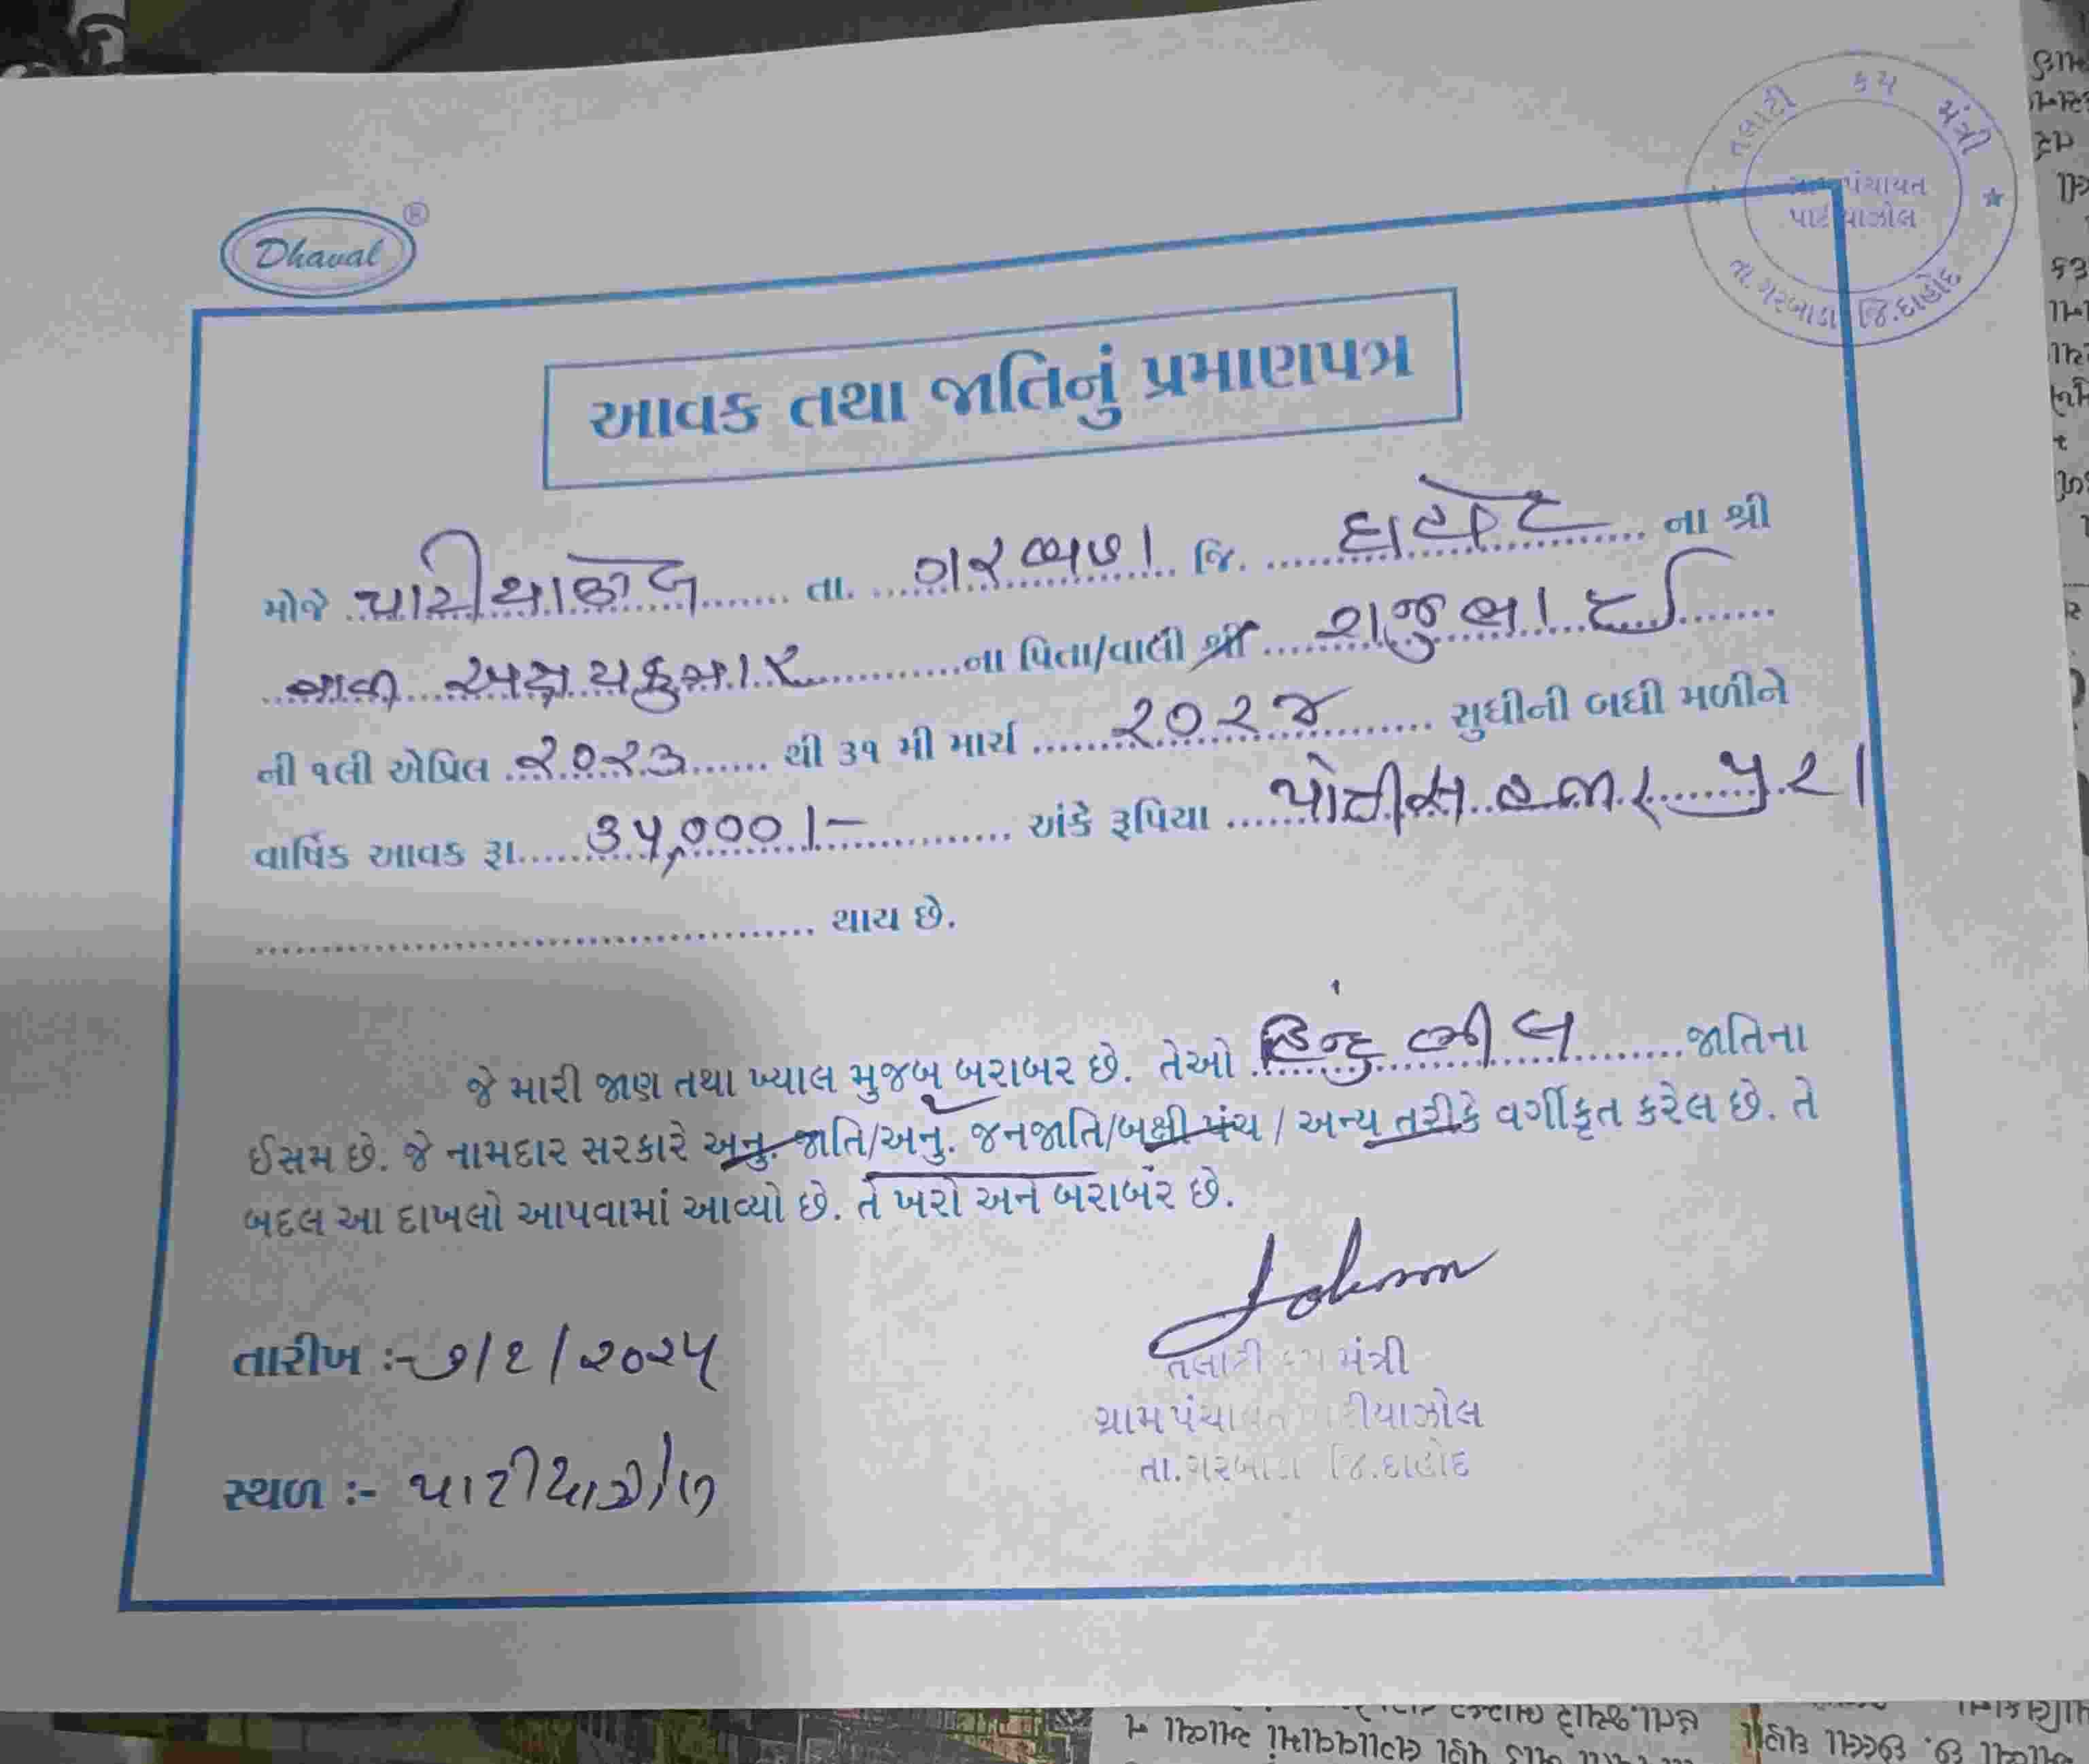 તલાટી કમ મંત્રી
ગ્રામ પંચાયત
પાટીયાઝોલ
તા.ગરબાડા જિ.દાહોદ
Dhaval ®
આવક તથા જાતિનું પ્રમાણપત્ર
મોજે પાટીયાઝોલ તા. ગરબાડા જિ. દાહોદ ના શ્રી
અક્ષયકુમાર ના પિતા/વાલી શ્રી રાજુભાઈ
ની ૧લી એપ્રિલ ૨૦૨૩ થી ૩૧ મી માર્ચ ૨૦૨૪ સુધીની બધી મળીને
વાર્ષિક આવક રૂા. ૩૫,૦૦૦/- અંકે રૂપિયા પાંત્રીસ હજાર પુરા
થાય છે.
જે મારી જાણ તથા ખ્યાલ મુજબ બરાબર છે. તેઓ હિન્દુ ભીલ જાતિના
ઈસમ છે. જે નામદાર સરકારે અનુ. જાતિ/અનું. જનજાતિ/બક્ષી પંચ / અન્ય તરીકે વર્ગીકૃત કરેલ છે. તે
બદલ આ દાખલો આપવામાં આવ્યો છે. તે ખરો અને બરાબર છે.
તારીખ :- ૭/૨/૨૦૨૫
તલાટી કમ મંત્રી
ગ્રામ પંચાયત પાટીયાઝોલ
તા.ગરબાડા જિ.દાહોદ
સ્થળ :- પાટીયાઝોલ